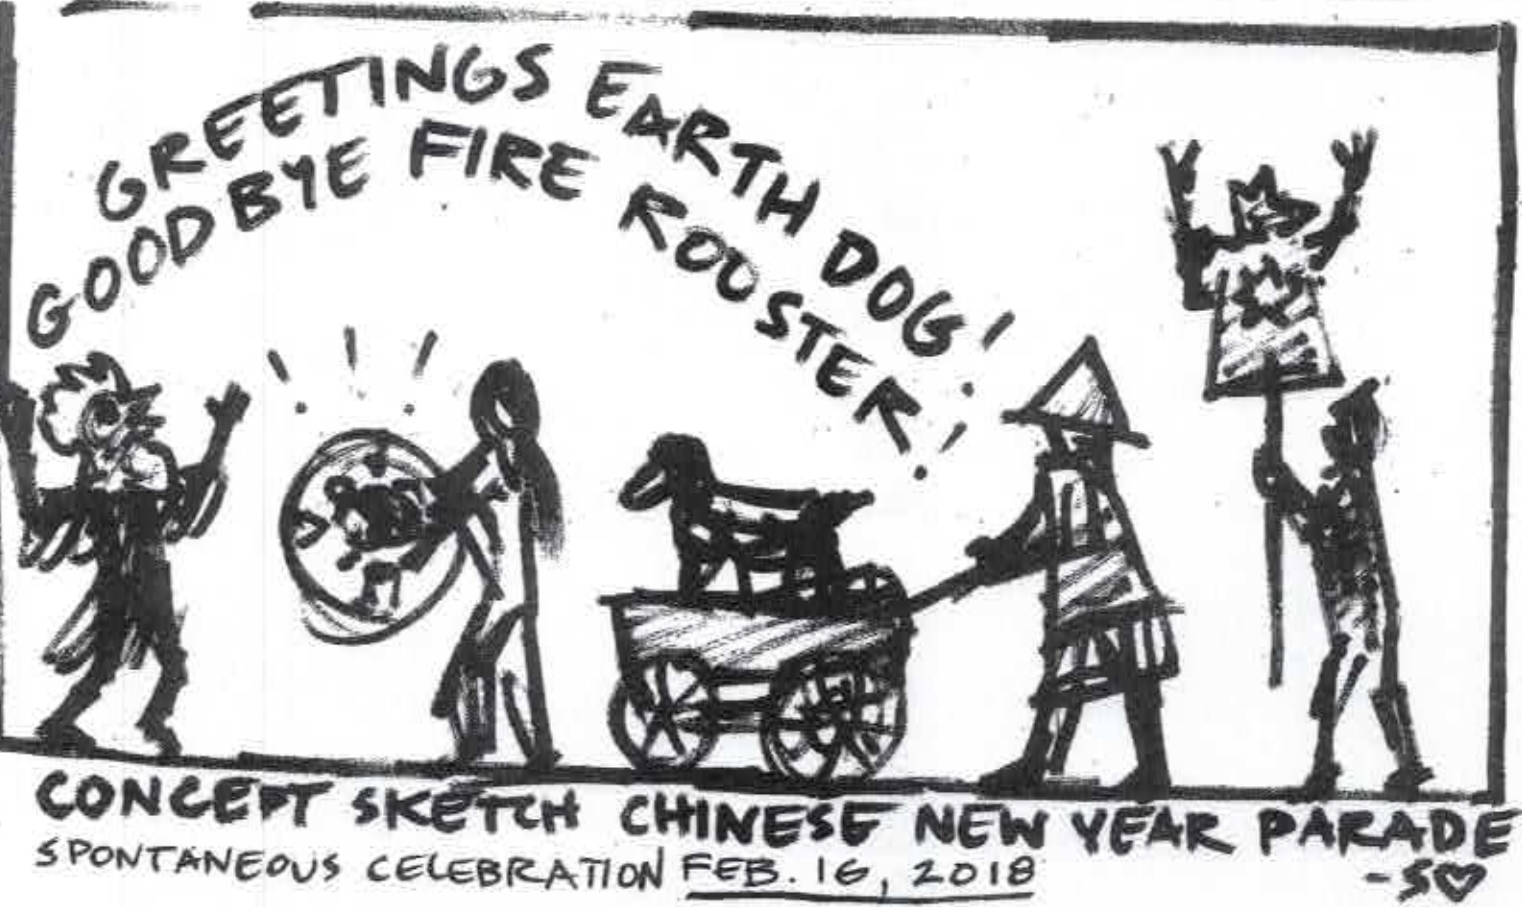 GREETINGS EARTH DOG!
GOODBYE FIRE ROOSTER!
CONCEPT SKETCH CHINESE NEW YEAR PARADE
SPONTANEOUS CELEBRATION FEB. 16, 2018
-S♡